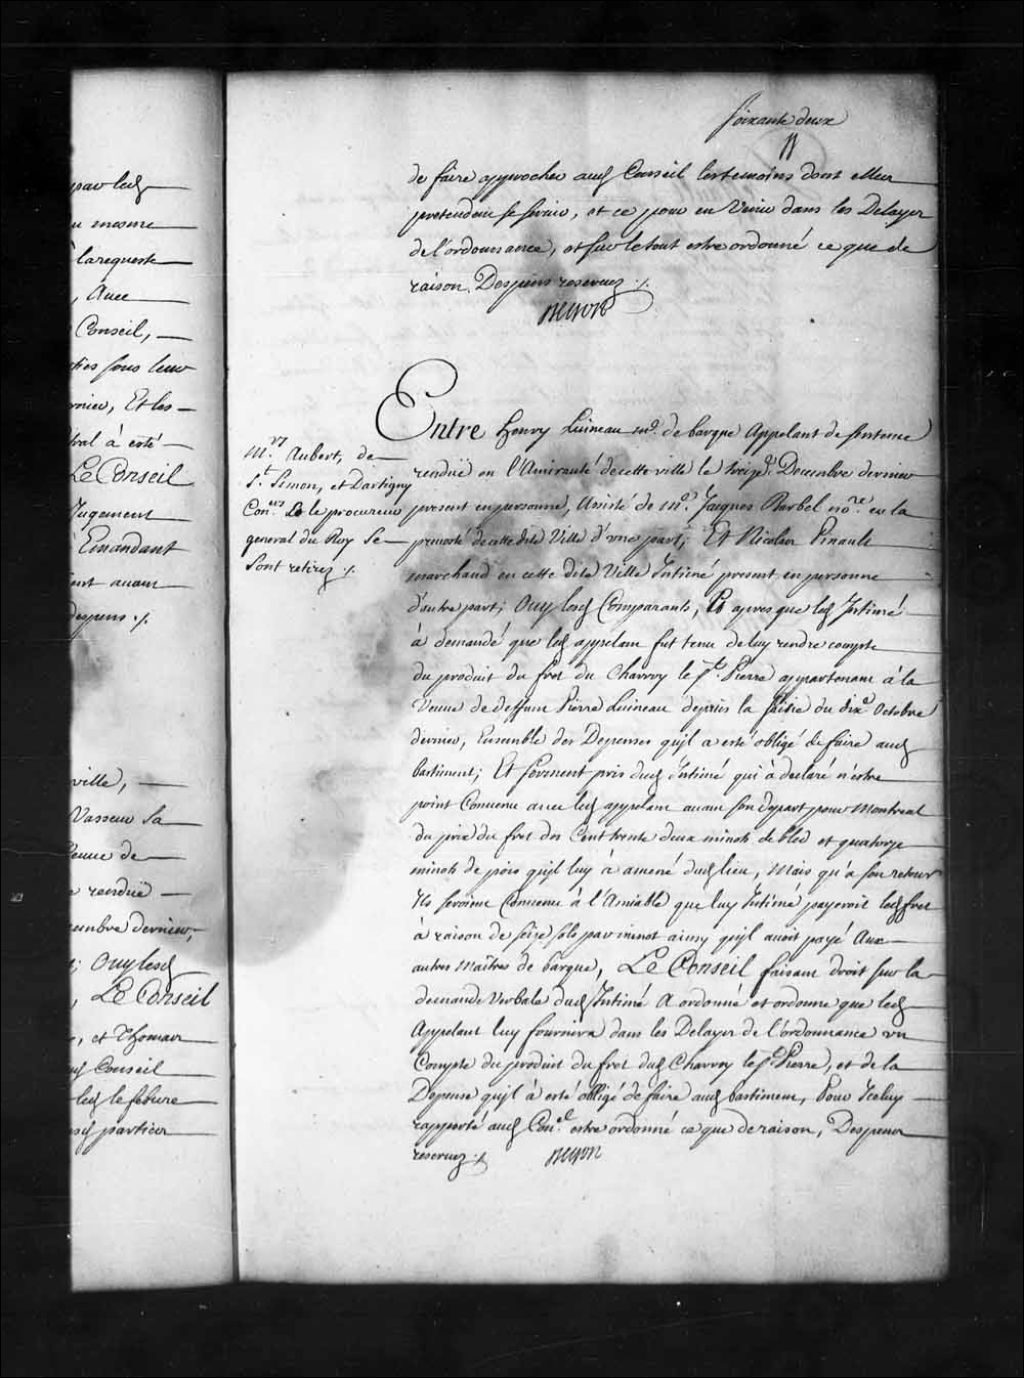 par led.
u mesme
larequeste
, Avec
Conseil,
ties sous leur
rnier, Et les
ral à esté
Le Conseil
Jugement
Emandant
ent avant
Despens ./.
ville,
Vasseur sa
veuve de
e rendüe
embre dernier,
; Ouy lesd.
, Le Conseil
, et Thomas
ud. Conseil
led. lefebure
esd. parties
Soixante deux
de faire approcher aud. Conseil les temoins dont elles
pretendent se servir, et ce pour en Venir dans les Delayes
de l'ordonnance, et sur le tout estre ordonné ce que de
raison, Despens reservez ./.
Mrs. Aubert, de
St. Simon, et Dartigny
Coners. Et le procureur
general du Roy se
sont retirez ./.
Entre Henry Luineau me. de barque Appelant de sentence
rendüe en l'Amirauté de cette ville le treize. Decembre dernier
present en personne, Assisté de me. Jacques Barbel nore. en la
prevosté de cette dite Ville d'une part; Et Nicolas Pinault
marchand en cette dite Ville Intimé present en personne
d'autre part; Ouy lesd. Comparants, Et apres que led. Intimé
à demandé que led. appelant fut tenu de luy rendre compte
du produit du fret du Charroy le St. Pierre appartenant à la
Veuve de deffunt Pierre Luineau depuis la saisie du dixe. Octobre
dernier, Ensemble des Depenses qu'il a esté obligé de faire aud.
bastiment; Et serment pris dud. Intimé qui à declaré n'estre
point Convenu avec led. appelant avant son depart pour Montreal
du prix du fret des Cent trente deux minots de bled et quatorze
minots de pois qu'il luy à amené dud. lieu, Mais qu'à son retour
Ils seroient Convenu à l'Amiable que luy Intimé payeroit led. fret
à raison de seize sols par minot ainsy qu'il avoit payé Aux
autres Maîtres de barque, Le Conseil faisant droit sur la
demande Verbale dud. Intimé A ordonné et ordonne que led.
Appelant luy fournira dans les Delayes de l'ordonnance un
Compte du produit du fret dud. Charroy le St. Pierre, et de la
Depense qu'il à esté obligé de faire aud. bastiment, Pour Iceluy
rapporté aud. Conel. estre ordonné ce que de raison, Despens
reservez ./.